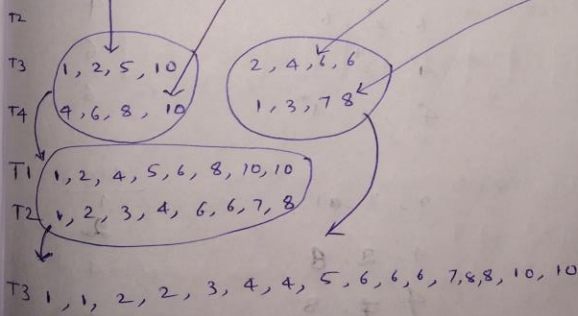 T2
T3 1, 2, 5, 10 2, 4, 6, 6
T4 4, 6, 8, 10 1, 3, 7 8
T1 1, 2, 4, 5, 6, 8, 10, 10
T2 1, 2, 3, 4, 6, 6, 7, 8
T3 1, 1, 2, 2, 3, 4, 4, 5, 6, 6, 6, 7, 8, 8, 10, 10